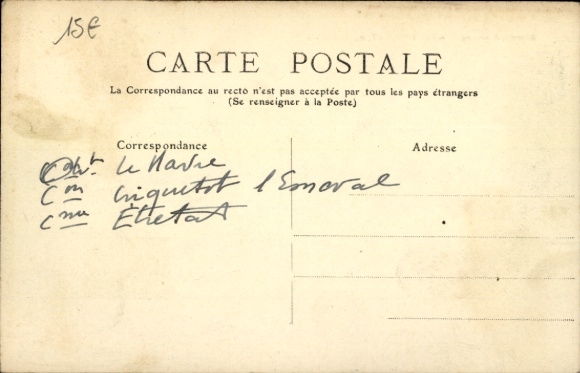 15€
CARTE POSTALE
La Correspondance au recto n'est pas acceptée par tous les pays étrangers
(Se renseigner à la Poste)
Correspondance
Adresse
Le Havre
Con Criquetot l'Esneval
Cne Etretat